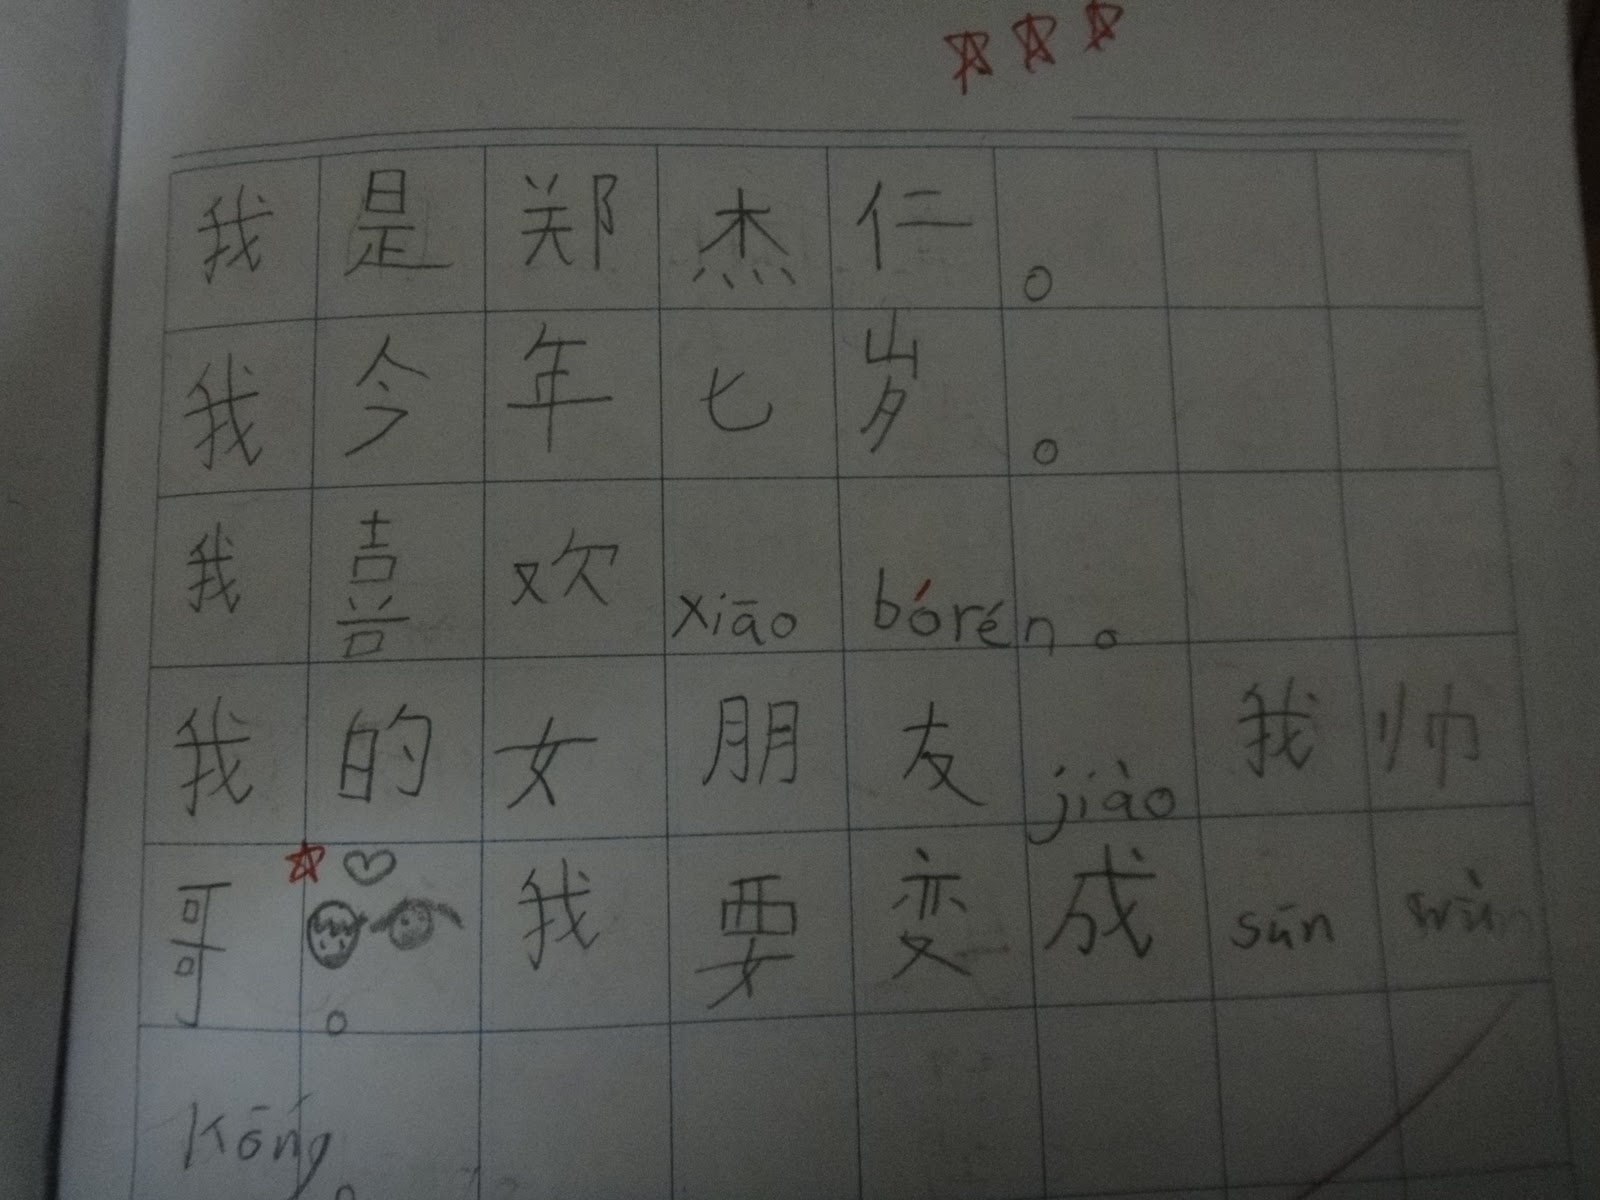 我是郑杰仁。
我今年七岁。
我喜欢xiāo bórén。
我的女朋友jiào我帅
哥。我要变成sūn wù
Kōng。